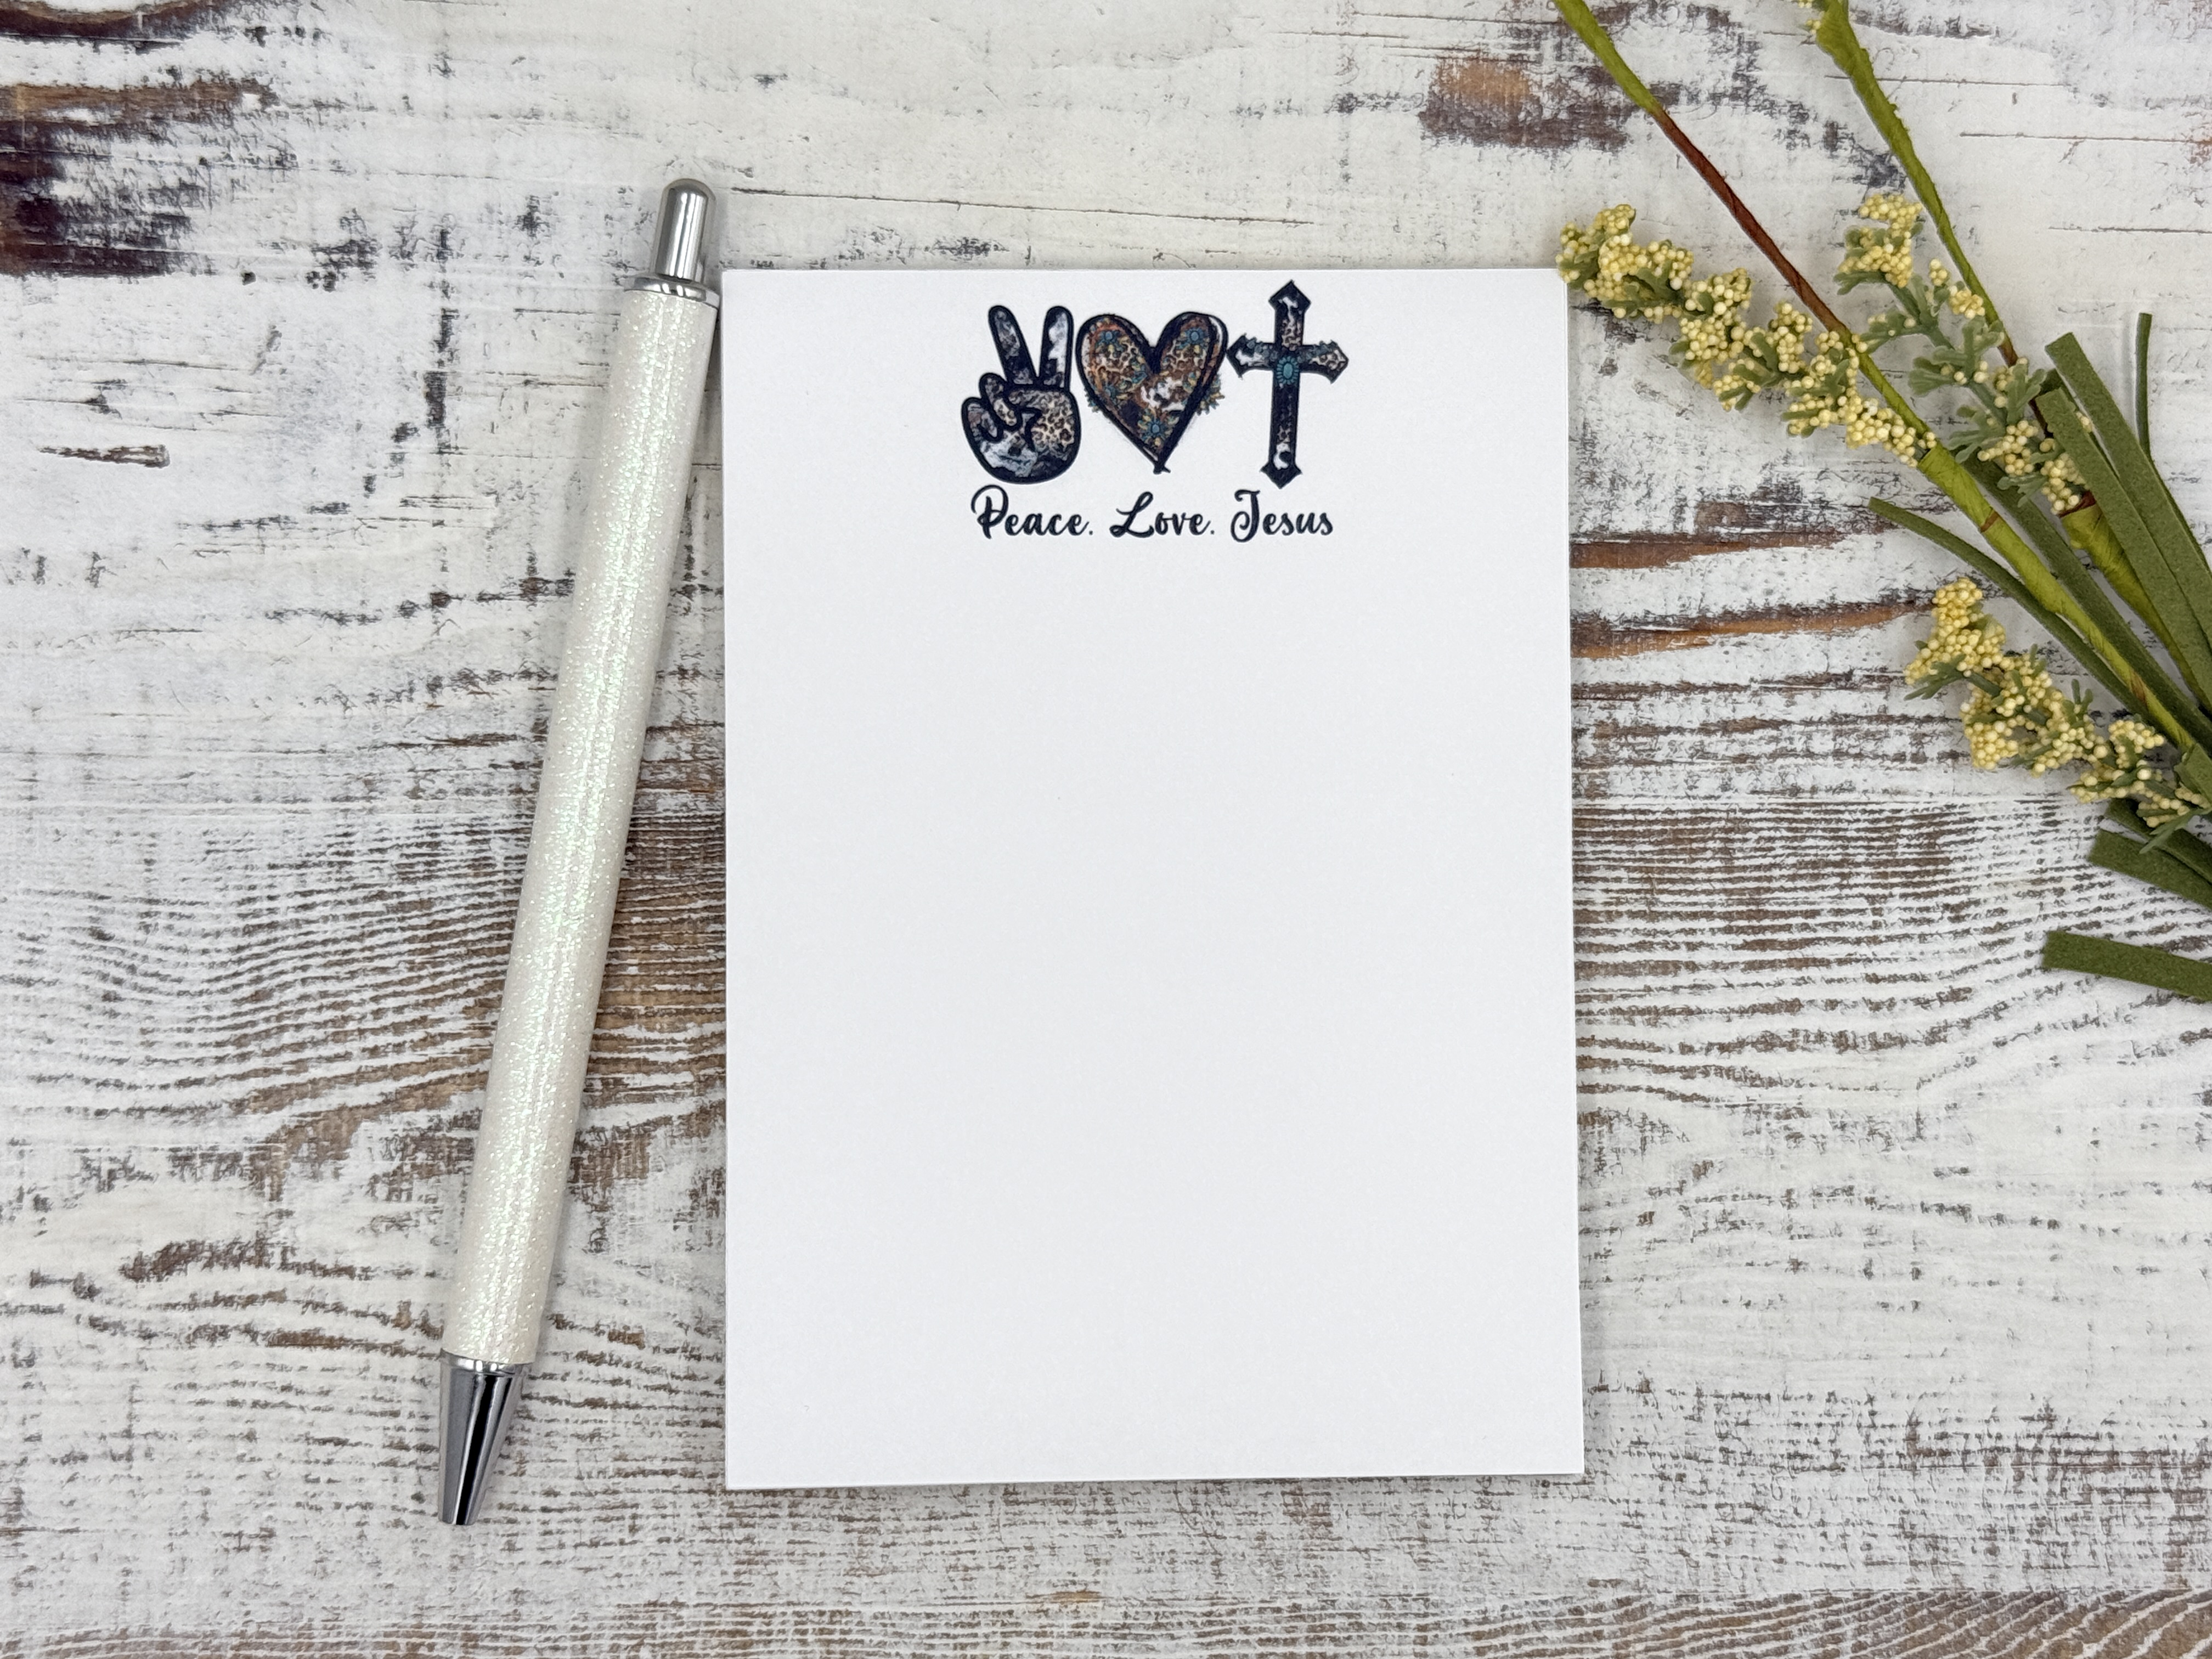 Peace. Love. Jesus